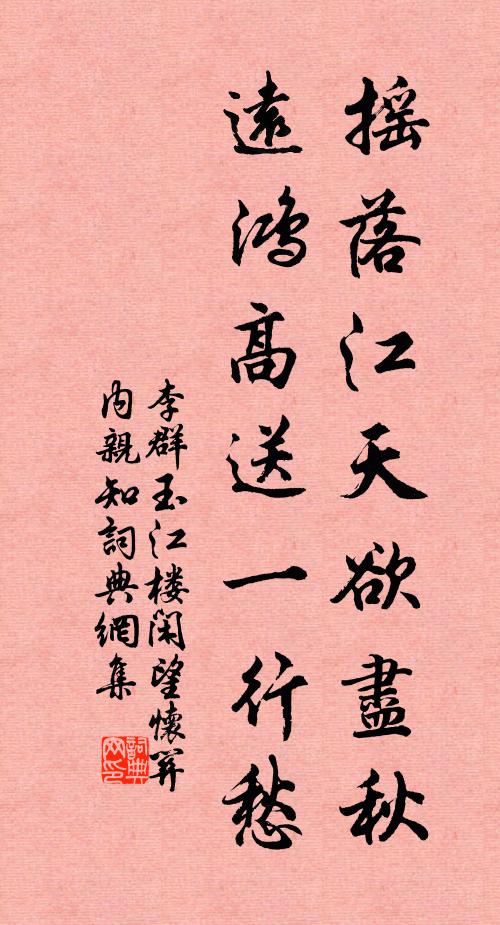 摇落江天欲盡秋
遠鴻高送一行愁
李群玉江楼閑望懷關
内親知詞典網集
詞典网印